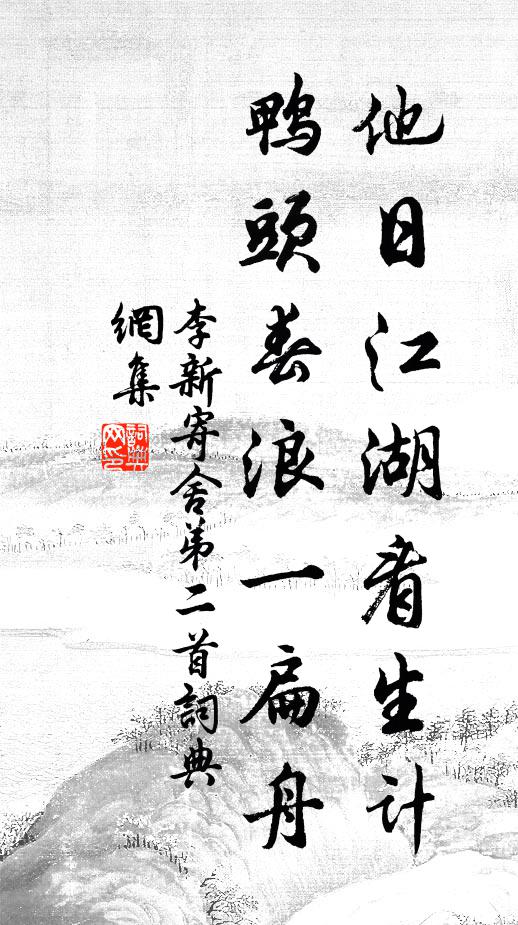 他日江湖看生计
鸭頭春浪一扁舟
李新寄舍弟二首詞典
網集